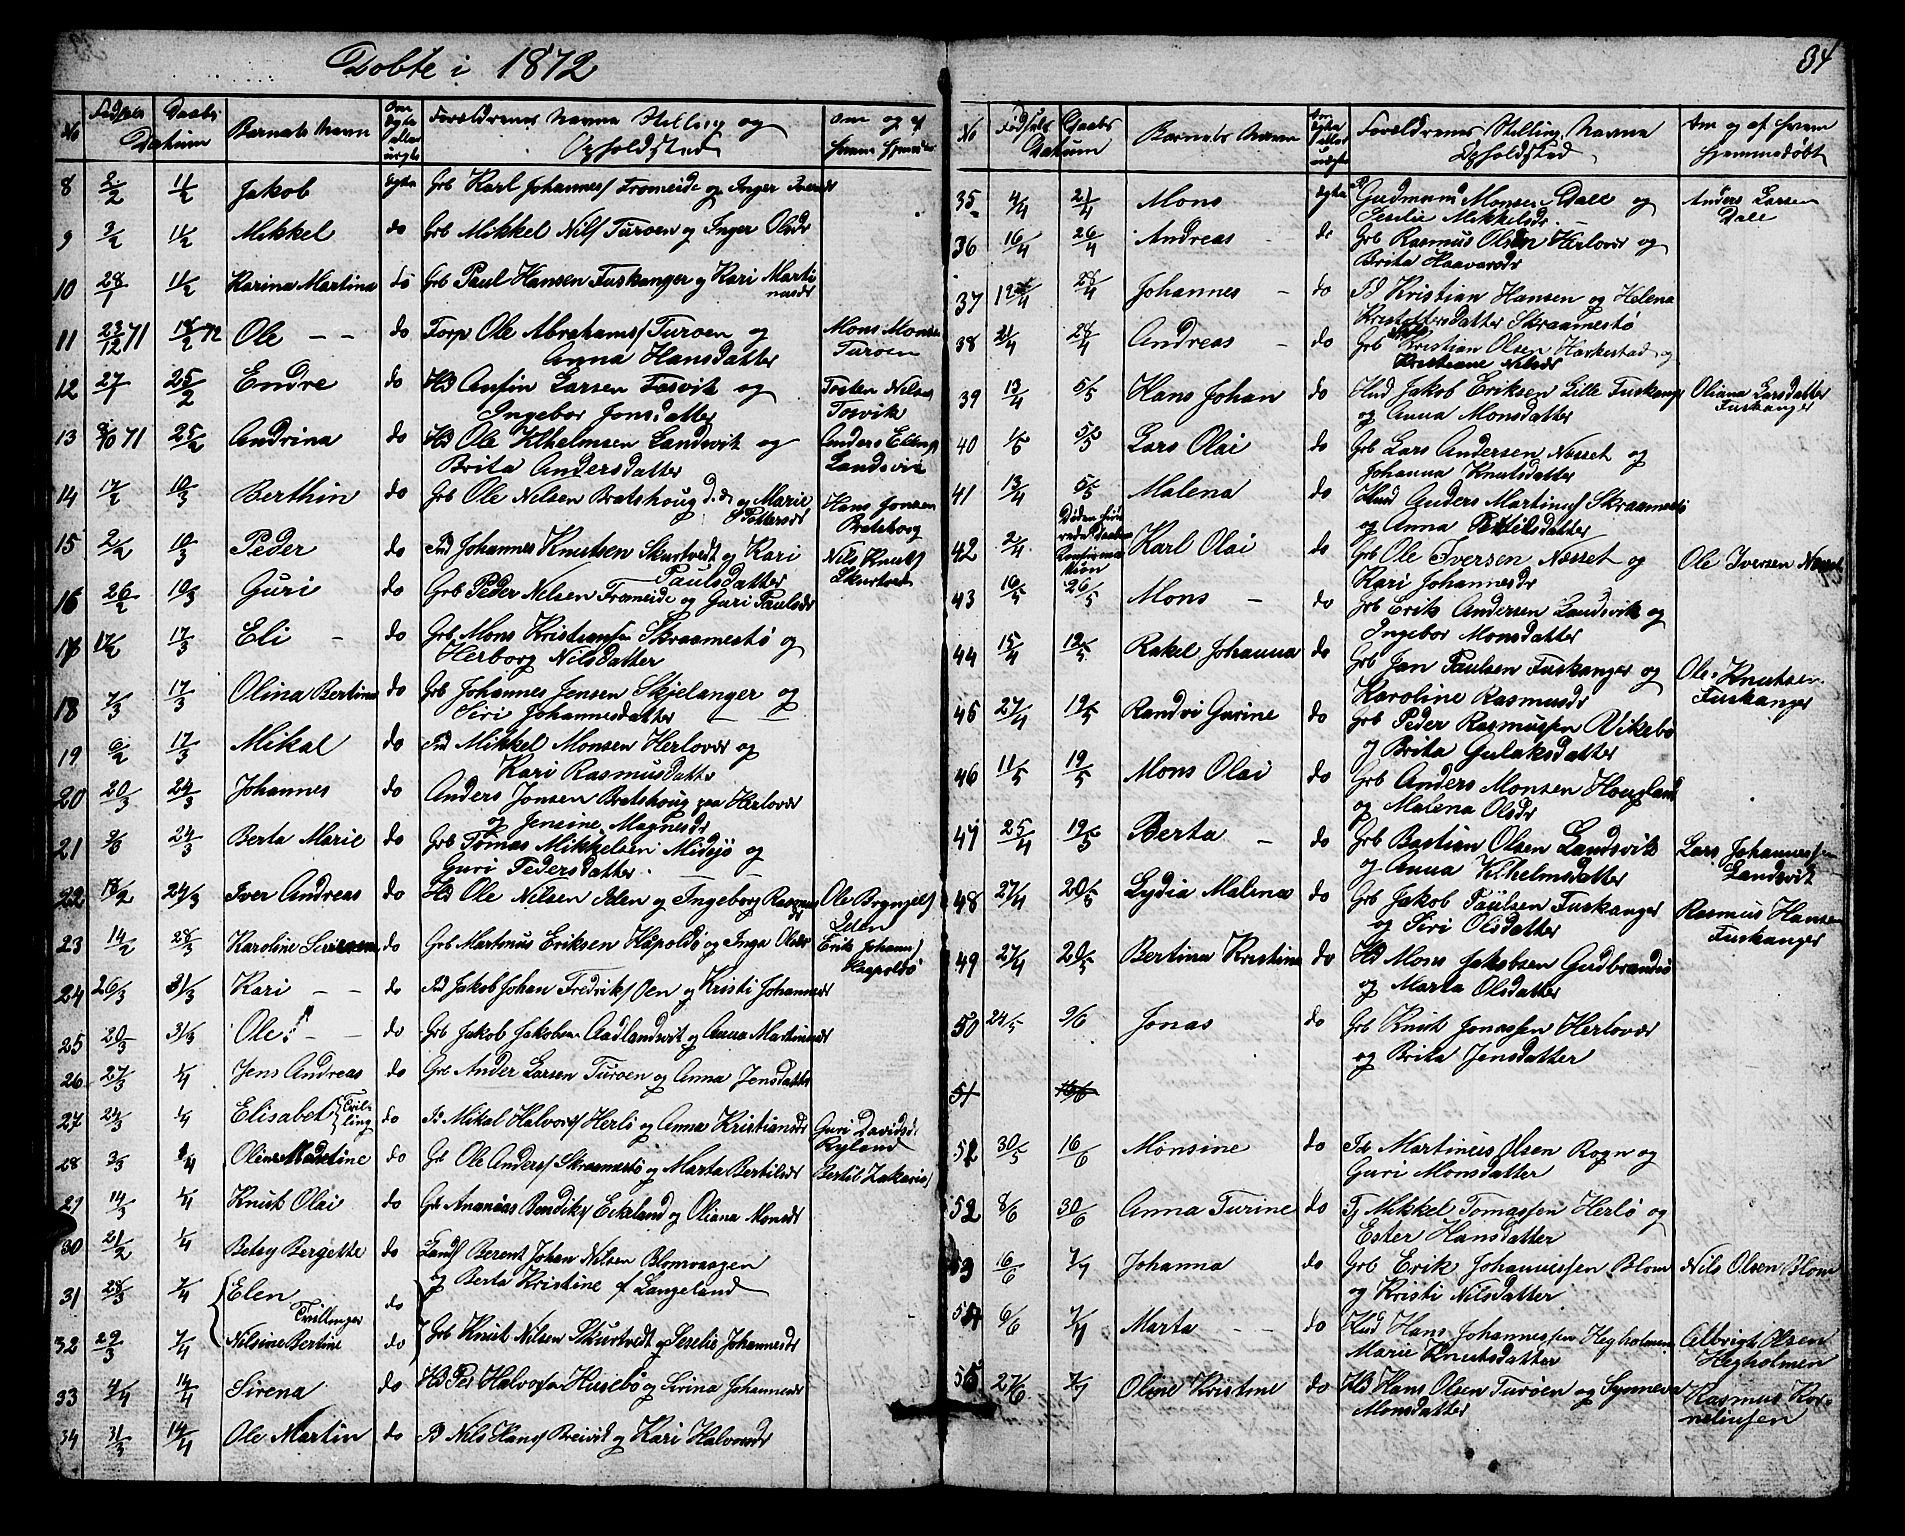 Døbte i 1872
34
No
Fødsels
Daabs
Datum
Barnets Navn
Om Egte eller uegte
Foreldrenes Navne Stilling og
Opholdsted
Om og af
hvem hjemme
8 2/2 11/2 Jakob Egte Grb Karl Johannes/ Fromeide og Inger
9 3/2 11/2 Mikkel do Grb Mikkel Nils/ Turøen og Inger Olsdr
10 28/1 11/2 Karina Martina do Grb Paul Hansen Fuskanger og Kari Marti
nusdr
11 23/12 71 18/2 72 Ole - - do Torp Ole Abrahams/ Turøen og Mons Monsen
Anna Hansdatter Turøen
12 27/1 25/2 Endre do Hd Anfin Larsen Tosvik og Torsten Nilsen
Ingebor Jonsdatter Tosvik
13 71 25/2 Andrina do Hd Ole Vilhelmsen Landsvik og Anders
Brita Andersdatter Landsvik
14 17/2 10/3 Berthin do Grb Ole Nilsen Bratshoug og Marie Hans Jonsen
Pettersdr Bratshoug
15 2/2 10/3 Peder do Ind Johannes Knutsen Skurtvedt og Kari Nils Knuts/
Paulsdatter Skurtvedt
16 26/2 10/3 Guri do Grb Peder Nilsen Fromeide og Guri Paulsdr
17 17/2 17/3 Eli - do Grb Mons Kristiansen Skraamestø og
Herborg Nilsdatter
18 7/3 17/3 Olina Bertina do Grb Johannes Jensen Skjelanger og
Siri Johannesdatter
19 6/2 17/3 Mikal do Ind Mikkel Monsen Herlovær og
Kari Rasmusdatter
20 20/3 24/3 Johannes do Anders Jonsen Bratshoug paa Herlovær
og Jensine Magnesdr
21 24/3 Berta Marie do Grb Tomas Mikkelsen Midsjø og
Guri Pedersdatter
22 18/2 24/3 Iver Andreas do Hd Ole Nilsen Iden og Ingeborg Rasmusdr Ole
Iden
23 14/2 28/3 Karoline do Grb Martinus Eriksen Haapoldø og Inga Olsdr Erik Johann/
Haapoldø
24 26/3 31/3 Kari - - do Ind Jakob Johan Fredrik/ Øen og Kristi Johannesdr
25 20/3 31/3 Ole - do Grb Jakob Jakobsen Aadlandsvik og Anna Martinusdr
26 27/3 1/4 Jens Andreas do Grb Ander Larsen Turøen og Anna Jensdatter
27 24/3 1/4 Elisabet Tvil-
ling do Is Mikal Halvors/ Herlø og Anna Kristiansdr Guri Davidsd.
Ryland
28 3/3 1/4 Oline Madeline do Gr Ole Anders/ Skraamestø og Marta Bertilsdr Bertil Zakarias/
29 14/3 1/4 Knut Olai do Grb Ananias Bendiks/ Eikeland og Oliana Monsdr
30 21/2 1/4 Betsy Bergette do Land/ Berent Johan Nilsen Blomvaagen
og Berta Kristine f Langeland
31 28/3 7/4 Elen do
Tvillinger
32 29/3 7/4 Nilsine Bertine do Grb Knut Nilsen Skurtvedt og Seselie Johannesdr
33 4/4 14/4 Sirena do Hd Per Halvorsen Husebø og Sirina Johannesdr
34 31/3 14/4 Ole Martin do Nils Hans/ Breivik og Kari Halvorsdr
No
Fødsels
Daabs
Datum
Barnets Navn
Om Egte eller uegte
Foreldrenes Stilling Navne
Opholdsted
Om og af hvem
hjemmedøbt
35 4/4 21/4 Mons Egte Gudmund Monsen Dale og Anders Larsen
Seselie Mikkelsdr. Dale
36 16/4 26/4 Andreas - do Grb Rasmus Olsen Herlovær og
Brita Haavarsdr
37 12/4 28/4 Johannes - do Is Kristian Hansen og Helena
Kristoffersdatter Skraamestø
38 21/4 28/4 Andreas - do Grb Kristian Olsen Harkestad og
Kristiane Nilsdr
39 13/4 5/5 Hans Johan do Hud Jakob Eriksen Lille Fuskanger Oliana Larsdatter
og Anna Monsdatter Fuskanger
40 5/5 Lars Olai do Grb Lars Andersen Nesset og
Johanna Knutsdatter
41 13/4 5/5 Malena do Hud Anders Martinus/ Skraamestø
og Anna Bertilsdatter
42 2/4 Karl Olai do Grb Ole Iversen Nesset og Ole Iversen Nesset
Kari Johannesdr
43 16/5 26/5 Mons - do Grb Erik Andersen Landsvik og
Ingebor Monsdatter
44 15/4 19/5 Rakel Johanna do Grb Jan Paulsen Fuskanger og Ole Knutsen
Karoline Rasmusdr Fuskanger
45 27/4 19/5 Randvi Gurine do Grb Peder Rasmussen Vikebø
og Brita Gulaksdatter
46 11/5 19/5 Mons Olai do Grb Anders Monsen Hougland
og Malena Olsdr
47 25/4 19/5 Berta - do Grb Bastian Olsen Landsvik Lars Johannessen
og Anna Vilhelmsdatter Landsvik
48 27/4 20/5 Lydia Malena do Grb Jakob Paulsen Fuskanger Rasmus Hansen
og Siri Olsdatter Fuskanger
49 27/4 20/5 Bertina Kristina do Hd Mons Jakobsen Gudbrandsø
og Marta Olsdatter
50 24/5 9/6 Jonas do Grb Knut Jonassen Herlovær
og Brita Jensdatter
51 16/6
52 30/5 16/6 Monsine do Is Martinus Olsen Rogn og
Guri Monsdatter
52 8/6 30/6 Anna Turine do Tj Mikkel Tomassen Herlø og
Ester Hansdatter
53 6/6 7/7 Johanna do Grb Erik Johannessen Blom Nils Olsen Blom
og Kristi Nilsdatter
54 6/6 7/7 Marta - - do Hud Hans Johannessen Hegholmen Albrigt Olsen
Marie Knutsdatter Hegholmen
55 27/6 7/7 Oline Kristine do Hd Hans Olsen Turøen og Synneva Rasmus Kor-
Monsdatter neliussen